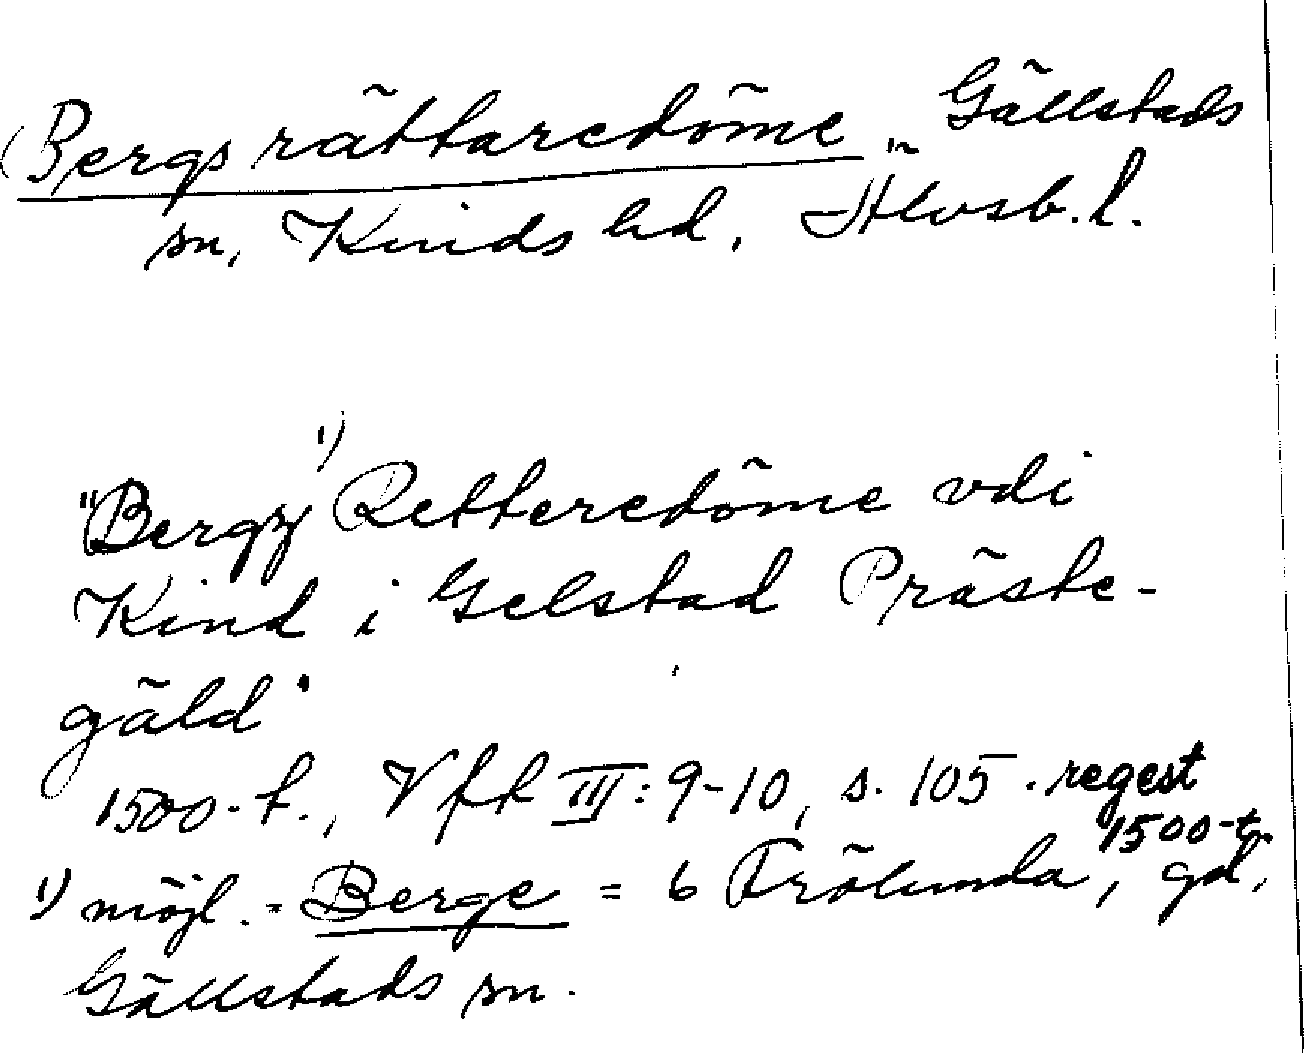 (Bergs rättaredöme, Gällstads
sn, Kinds hd, Älvsb. l.
1)
"Bergz Retteredöme vdi
Kind i Gelstad Präste-
gäld"
1500-t., Vfft III: 9-10, s. 105. regest
1500-t.
1) möjl. = Berge = 6 Frölunda, gd,
Gällstads sn.